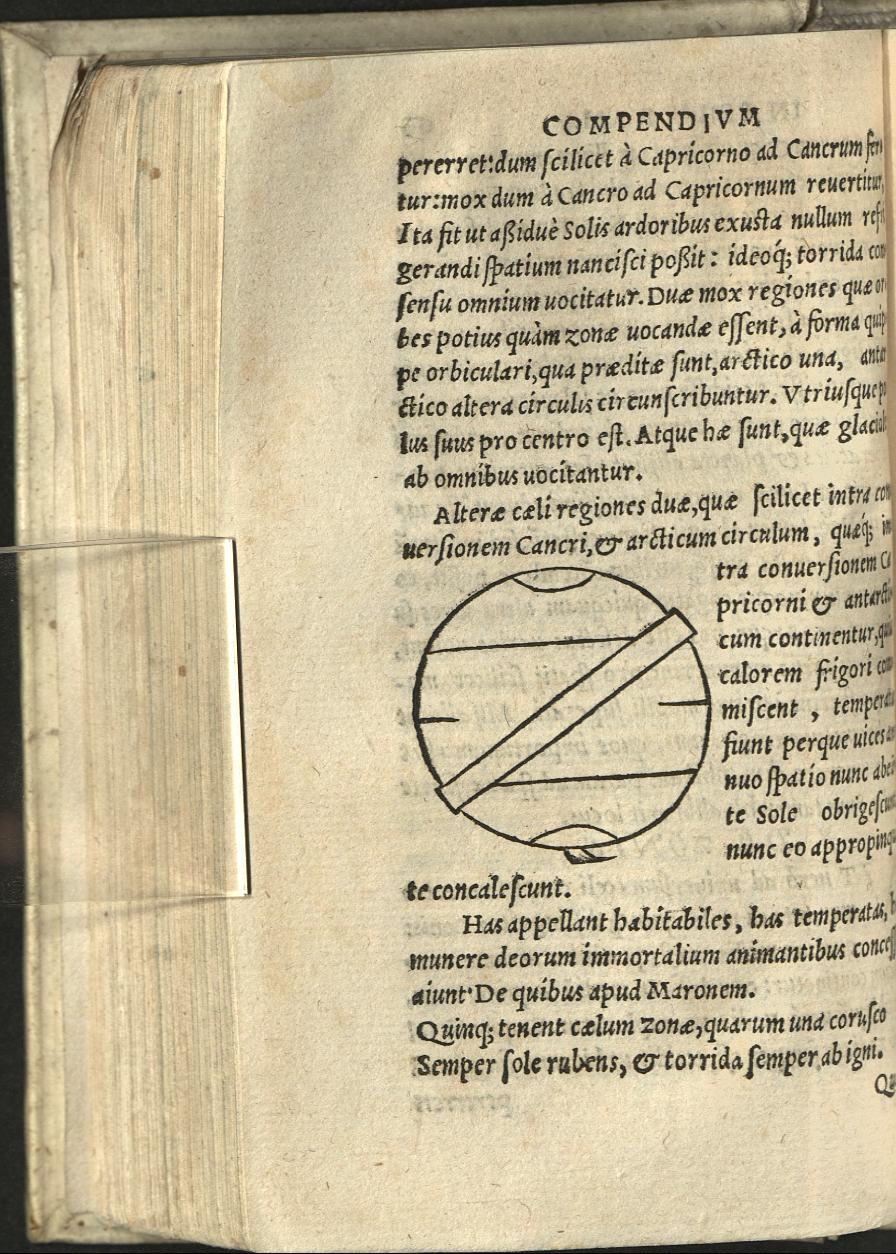 COMPENDIVM
pererret: dum ſcilicet à Capricorno ad Cancrum
tur: mox dum à Cancro ad Capricornum reuertitur,
Ita fit ut aßiduè Solis ardoribus exuſta nullum
gerandi ſpatium nanciſci poßit: ideoq́; torrida
ſenſu omnium uocitatur. Duæ mox regiones quæ
bes potius quàm zonæ uocandæ eſſent, à forma
pe orbiculari, qua præditæ ſunt, arctico una,
ctico altera circulis circunſcribuntur. Vtriuſque
lus ſuus pro centro eſt. Atque hæ ſunt, quæ
ab omnibus uocitantur.
Alteræ cæli regiones duæ, quæ ſcilicet intra
uerſionem Cancri, & arcticum circulum, quæq́;
tra conuerſionem
pricorni &
cum continentur,
calorem frigori
miſcent,
fiunt perque uices
nuo ſpatio nunc
te Sole
nunc eo
te concaleſcunt.
Has appellant habitabiles, has temperatas,
munere deorum immortalium animantibus
aiunt· De quibus apud Maronem.
Quinq; tenent cælum zonæ, quarum una coruſco
Semper ſole rubens, & torrida ſemper ab igni.